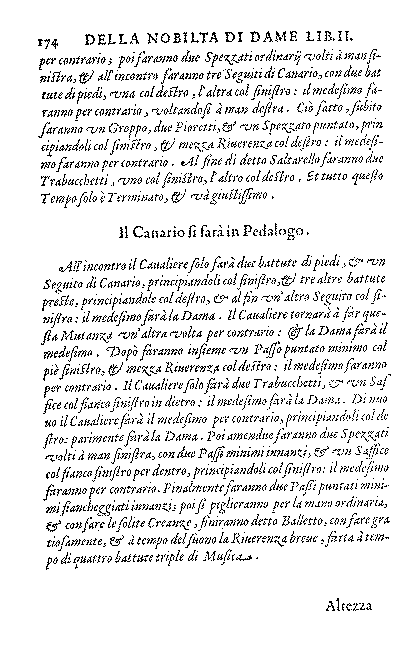 174 DELLA NOBILTA DI DAME LIB. II.
per contrario; poi faranno due Spezzati ordinarij volti à man si-
nistra, & all'incontro faranno tre Seguiti di Canario, con due bat
tute di piedi, vna col destro, l'altra col sinistro: il medesimo fa-
ranno per contrario, voltandosi à man destra. Ciò fatto, subito
faranno vn Groppo, due Fioretti, & vn Spezzato puntato, prin
cipiandoli col sinistro, & mezza Riuerenza col destro: il medesi-
mo faranno per contrario. Al fine di detto Saltarello faranno due
Trabucchetti, vno col sinistro, l'altro col destro. Et tutto questo
Tempo solo è Terminato, & và giustissimo.
Il Canario si farà in Pedalogo.
All'incontro il Caualiere solo farà due battute di piedi, & vn
Seguito di Canario, principiandoli col sinistro, & tre altre battute
preste, principiandole col destro, & al fin vn'altro Seguito col si-
nistro: il medesimo farà la Dama. Il Caualiere tornarà à far que-
sta Mutanza vn'altra volta per contrario: & la Dama farà il
medesimo. Dopò faranno insieme vn Passo puntato minimo col
piè sinistro, & mezza Riuerenza col destro: il medesimo faranno
per contrario. Il Caualiere solo farà due Trabucchetti, & vn Saf
fice col fianco sinistro in dietro: il medesimo farà la Dama. Di nuo
uo il Caualiere farà il medesimo per contrario, principiandoli col de
stro: parimente farà la Dama. Poi amendue faranno due Spezzati
volti à man sinistra, con due Passi minimi innanzi, & vn Saffice
col fianco sinistro per dentro, principiandoli col sinistro: il medesimo
faranno per contrario. Finalmente faranno due Passi puntati mini-
mi fiancheggiati innanzi; poi si piglieranno per la mano ordinaria,
& con fare le solite Creanze, finiranno detto Balletto, con fare gra
tiosamente, & à tempo del suono la Riuerenza breue, fatta à tem-
po di quattro battute triple di Musica.
Altezza